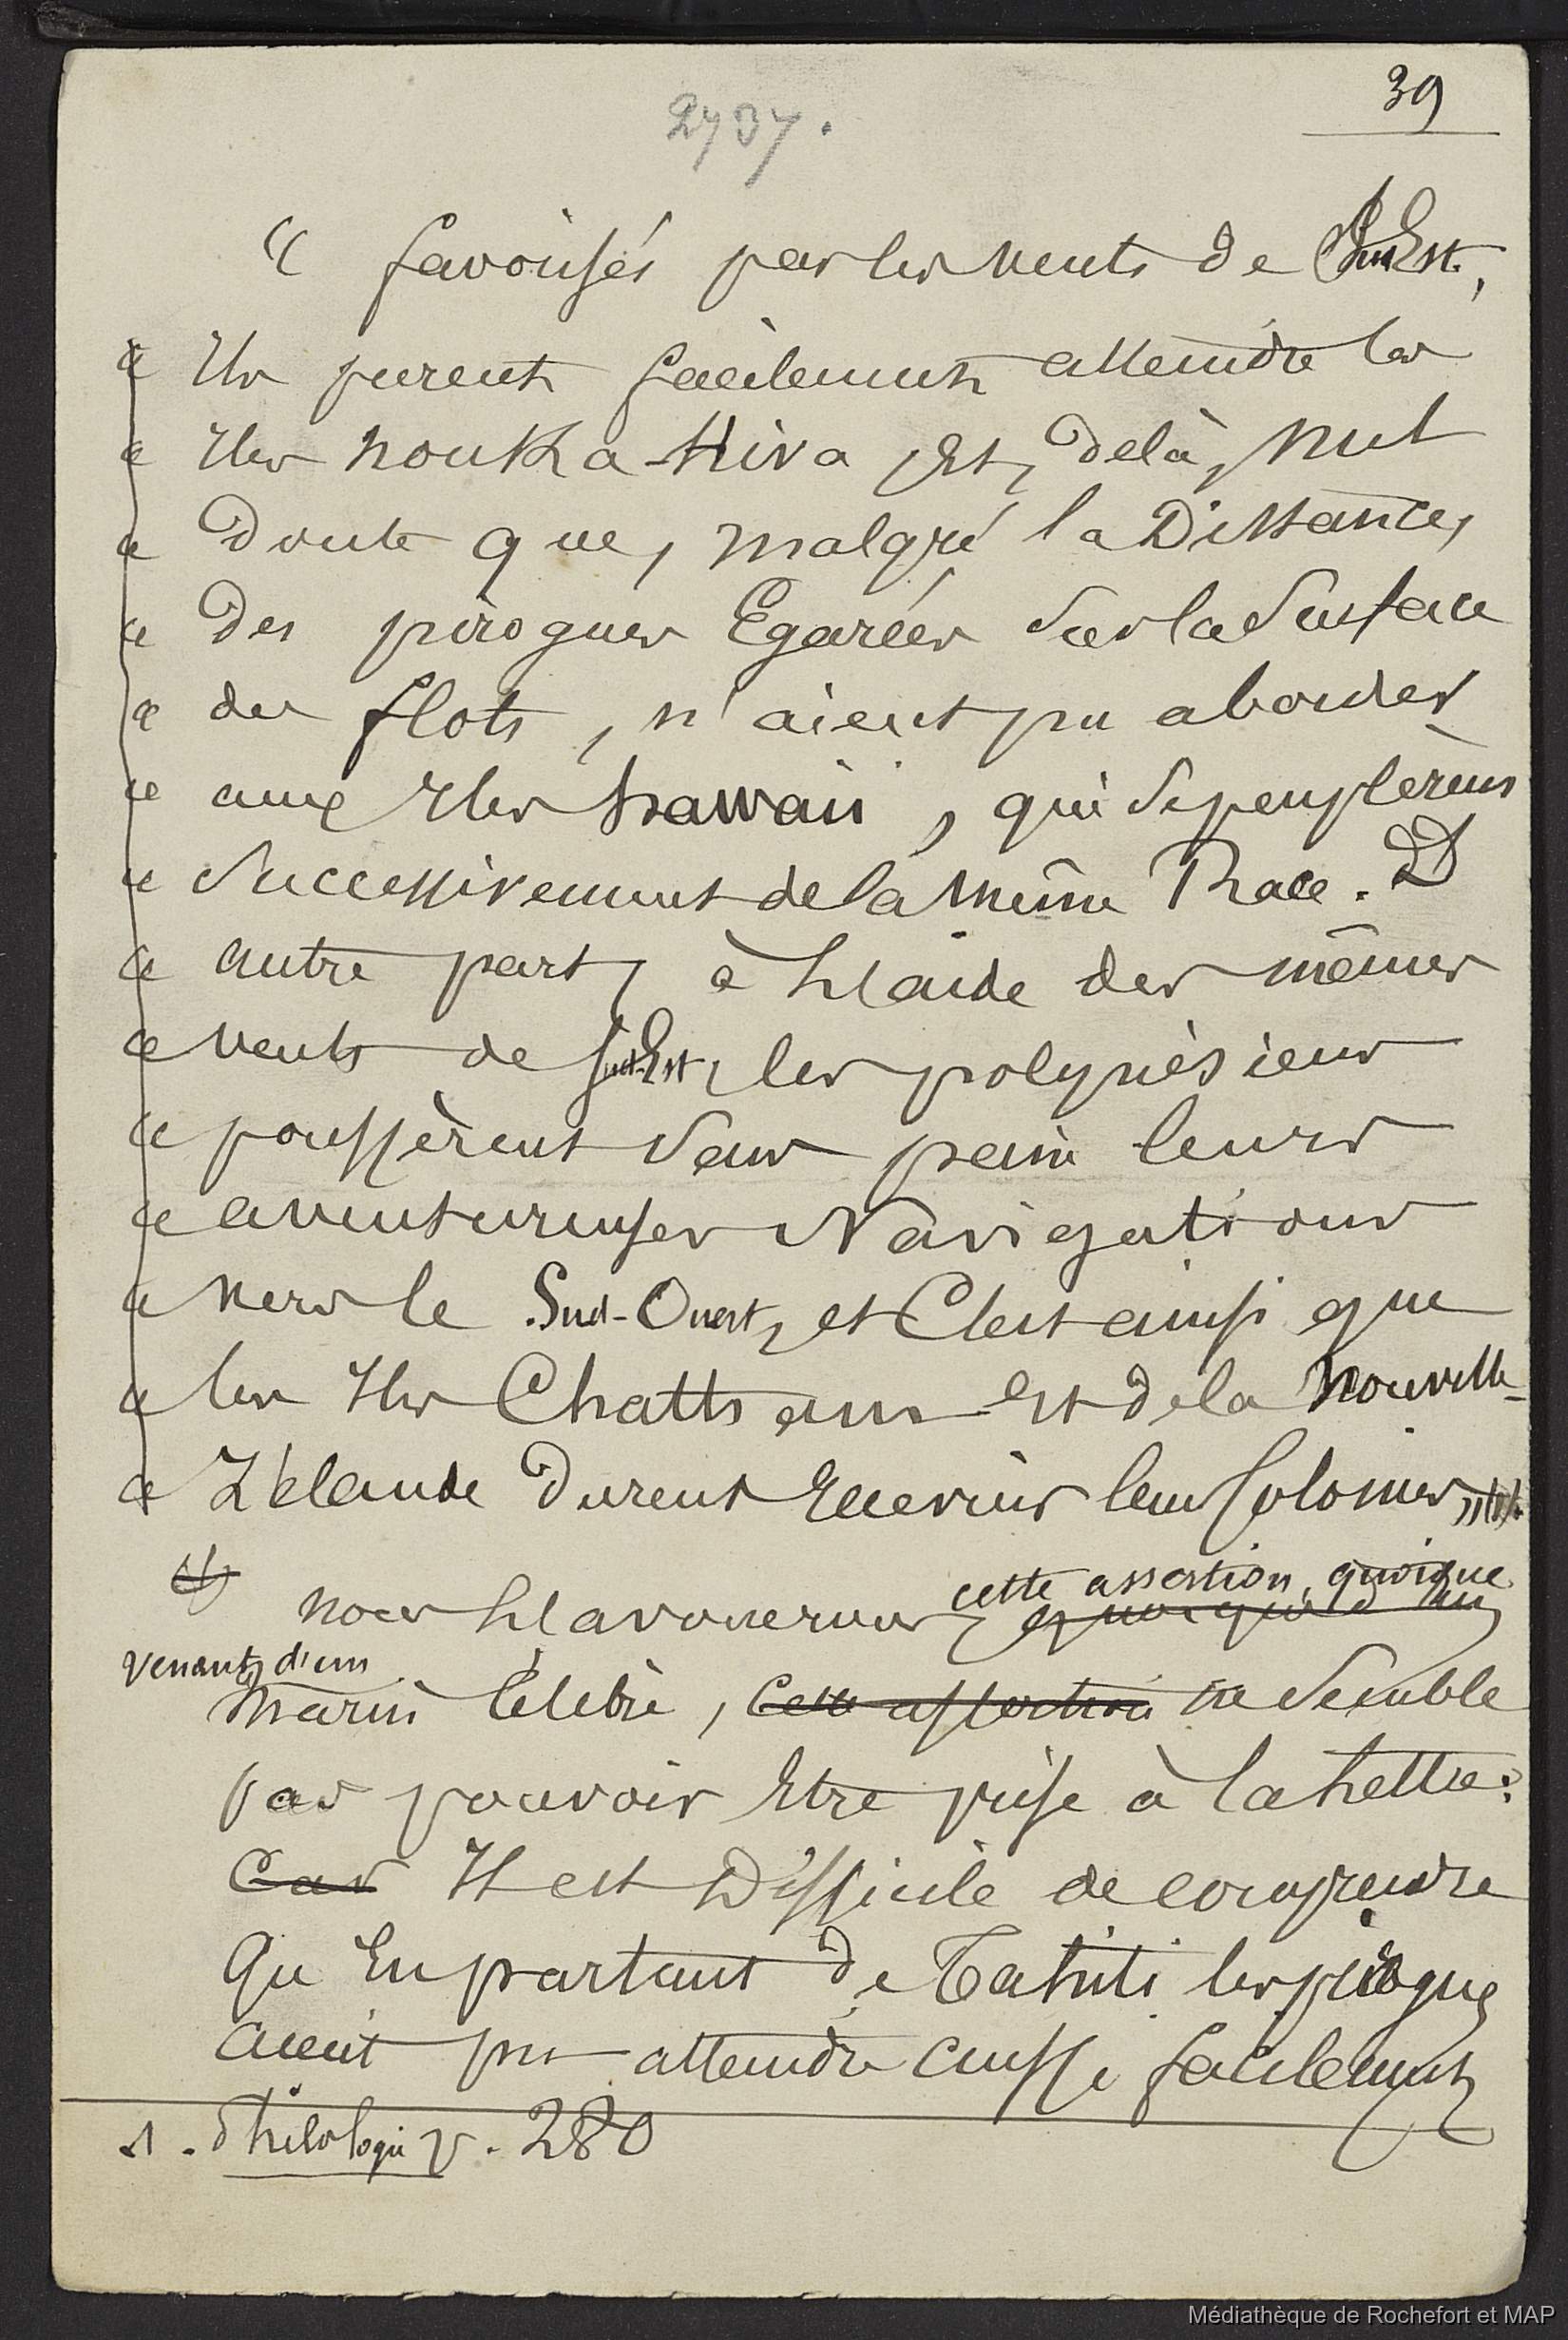 39
2737.
« favorisés par les vents de Sud Est,
« Ils purent facilement atteindre les
« Iles Nouka-Hiva, Et, delà, nul
« doute que, malgré la Distance,
« des pirogues Egarées sur la surface
« des flots, n'aient pu aborder
« aux Iles hawaii, qui se peuplèrent
« successivement de la même Race. D'
« autre part, à l'aide des mêmes
« vents de Sud-Est, les polynésiens
« poussèrent sans peine leurs
« aventureuses Navigations
« vers le Sud-Ouest, et C'est ainsi que
« les Iles Chattam Et de la Nouvelle-
« Zélande durent recevoir leurs Colonies »(1).
nous l'avouerons, cette assertion, quoique
venant d'un
marin célèbre, cette assertion ne semble
pas pouvoir Etre prise à la lettre:
Car Il est Difficile de comprendre
Qu'En partant de Tahiti les pirogues
aient pu atteindre aussi facilement
1. Philologie p. 280
Médiathèque de Rochefort et MAP